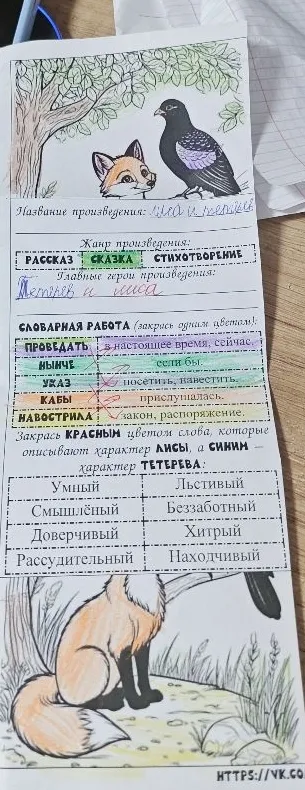 Название произведения: лиса и тетерев
Жанр произведения:
РАССКАЗ СКАЗКА СТИХОТВОРЕНИЕ
Главные герои произведения:
Тетерев и лиса
СЛОВАРНАЯ РАБОТА (закрась одним цветом):
ПРОВЕДАТЬ в настоящее время, сейчас.
НЫНЧЕ если бы.
УКАЗ посетить, навестить.
КАБЫ прислушалась.
НАВОСТРИЛА закон, распоряжение.
Закрась КРАСНЫМ цветом слова, которые
описывают характер ЛИСЫ, а СИНИМ -
характер ТЕТЕРЕВА:
Умный Льстивый
Смышлёный Беззаботный
Доверчивый Хитрый
Рассудительный Находчивый
HTTPS://VK.CO